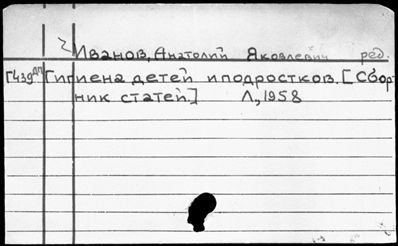 Иванов, Анатолий Яковлевич ред.
Г439дп Гигиена детей и подростков. [Сбор-
ник статей.] Л., 1958